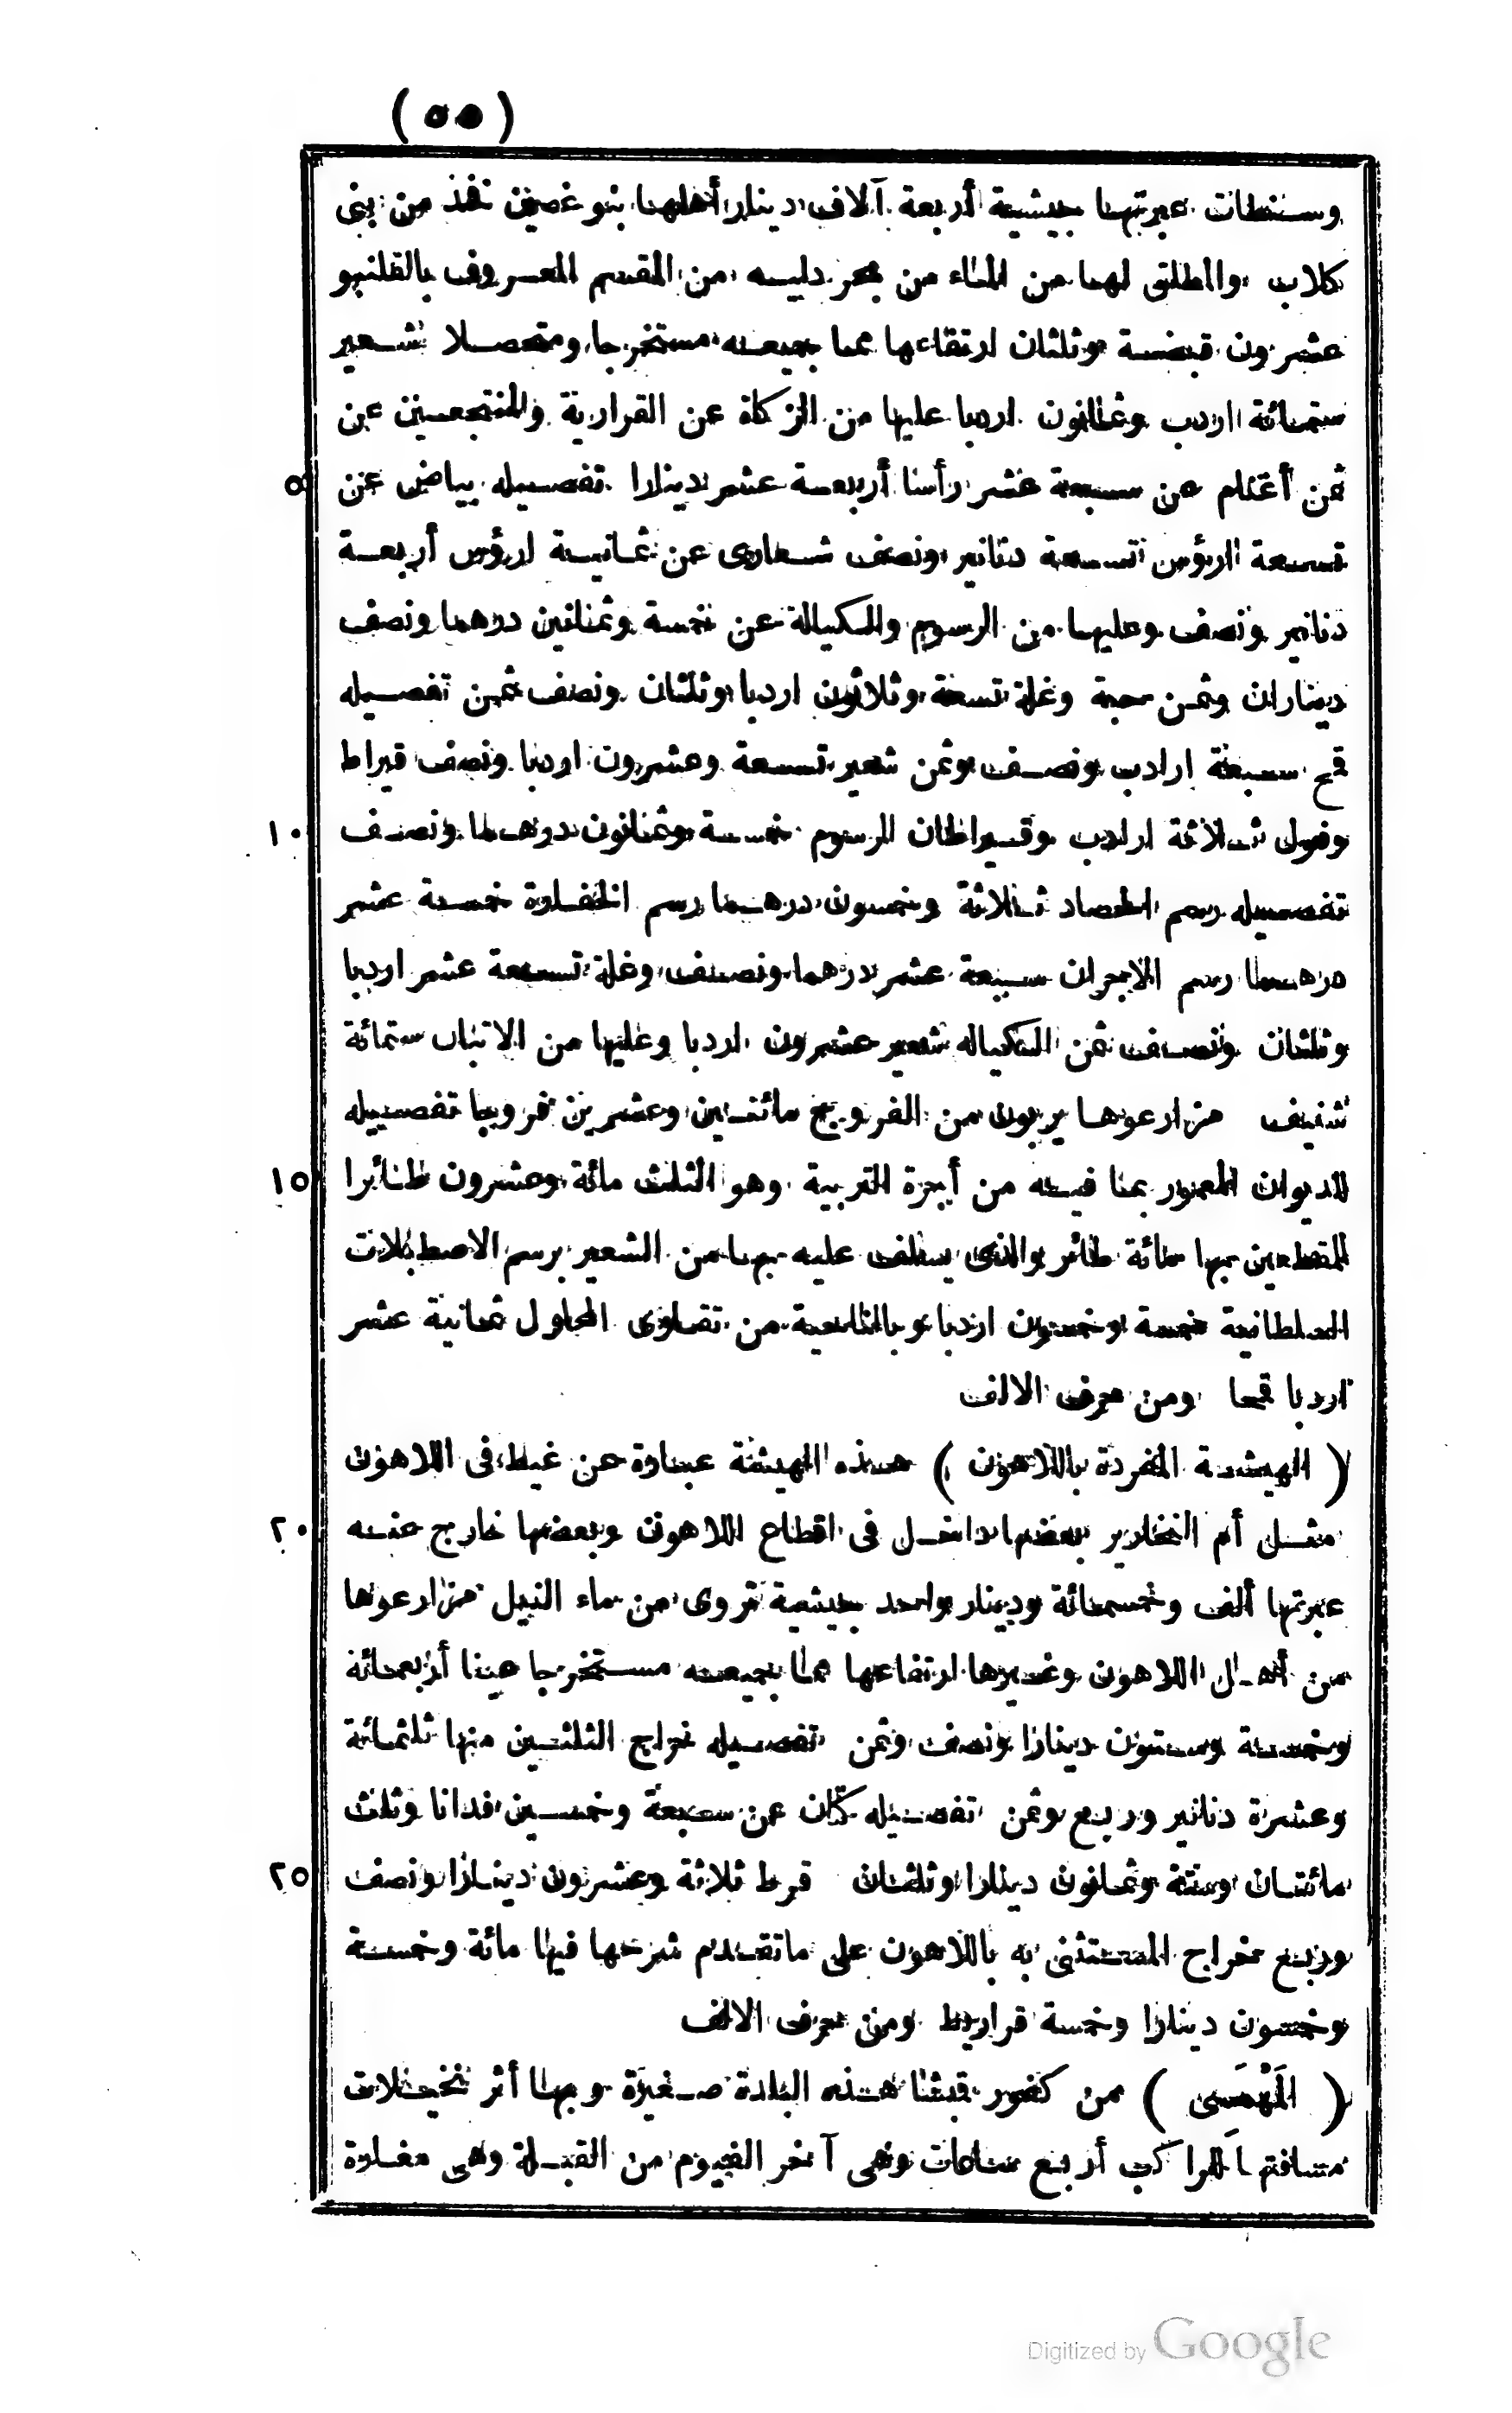 (٥٥)
وسنطات عبرتها جيشية أربعة آلاف دينار أهلها بنو غصين فخذ من بنى
كلاب والمطلق لها من الماء من بحر دليه من المقسم المعروف بالقلنبو
عشرون قبضة وثلثان ارتفاعها مما جميعه مستخرجا ومتحصلا شعير
ستمائة اردب وثمانون اردبا عليها من الزكاة عن القرارية والمنتجعين عن
ثمن أغنام عن سبعة عشر رأسا أربعة عشر دينارا تفصيله بياض عن
٥
تسعة ارؤس تسعة دنانير ونصف شعارى عن ثمانية ارؤس أربعة
دنانير ونصف وعليها من الرسوم والكيالة عن خمسة وثمانين درهما ونصف
ديناران وثمن حبة وغلة تسعة وثلاثون اردبا وثلثان ونصف ثمن تفصيله
قمح سبعة ارادب ونصف وثمن شعير تسعة وعشرون اردبا ونصف قيراط
وفول ثلاثة ارادب وقيراطان الرسوم خمسة وثمانون درهما ونصف
١٠
تفصيله رسم الحصاد ثلاثة وخمسون درهما رسم الخفارة خمسة عشر
درهما رسم الاجران سبعة عشر درهما ونصف وغلة تسعة عشر اردبا
وثلثان ونصف ثمن الكياله شعير عشرون اردبا وعليها من الاتبان ستمائة
شنيف مزارعوها يربون من الفروج مائتين وعشرين فروجا تفصيله
للديوان المعمور بما فيه من أجرة التربية وهو الثلث مائة وعشرون طائرا
١٥
للمقطعين بها مائة طائر والذى يسلف عليه بها من الشعير برسم الاصطبلات
السلطانية خمسة وخمسون اردبا وبالناحية من تقاوى المحاول ثمانية عشر
اردبا قمحا ومن حرف الالف
( الهيشة المفردة باللاهون ) هذه الهيشة عبارة عن غيط فى اللاهون
مثل أم النخارير بعضها داخل فى اقطاع اللاهون وبعضها خارج عنه
٢٠
عبرتها ألف وخمسمائة ودينار واحد جيشية تروى من ماء النيل مزارعوها
من أهل اللاهون وغيرها ارتفاعها مما جميعه مستخرجا عينا أربعمائة
وخمسة وستون دينارا ونصف وثمن تفصيله خراج الثلثين منها ثلثمائة
وعشرة دنانير وربع وثمن تفصيله كتان عن سبعة وخمسين فدانا وثلث
مائتان وستة وثمانون دينارا وثلثان قرط ثلاثة وعشرون دينارا ونصف
٢٥
وربع خراج المستثنى به باللاهون على ما تقدم شرحها فيها مائة وخمسة
وخمسون دينارا وخمسة قراريط ومن حرف الالف
( المَهْمَسى ) من كفور قبشا هذه البلدة صغيرة وبها أثر نخيلات
مسافتها للراكب أربع ساعات وهى آخر الفيوم من القبلة وهى مفازة
Digitized by Google